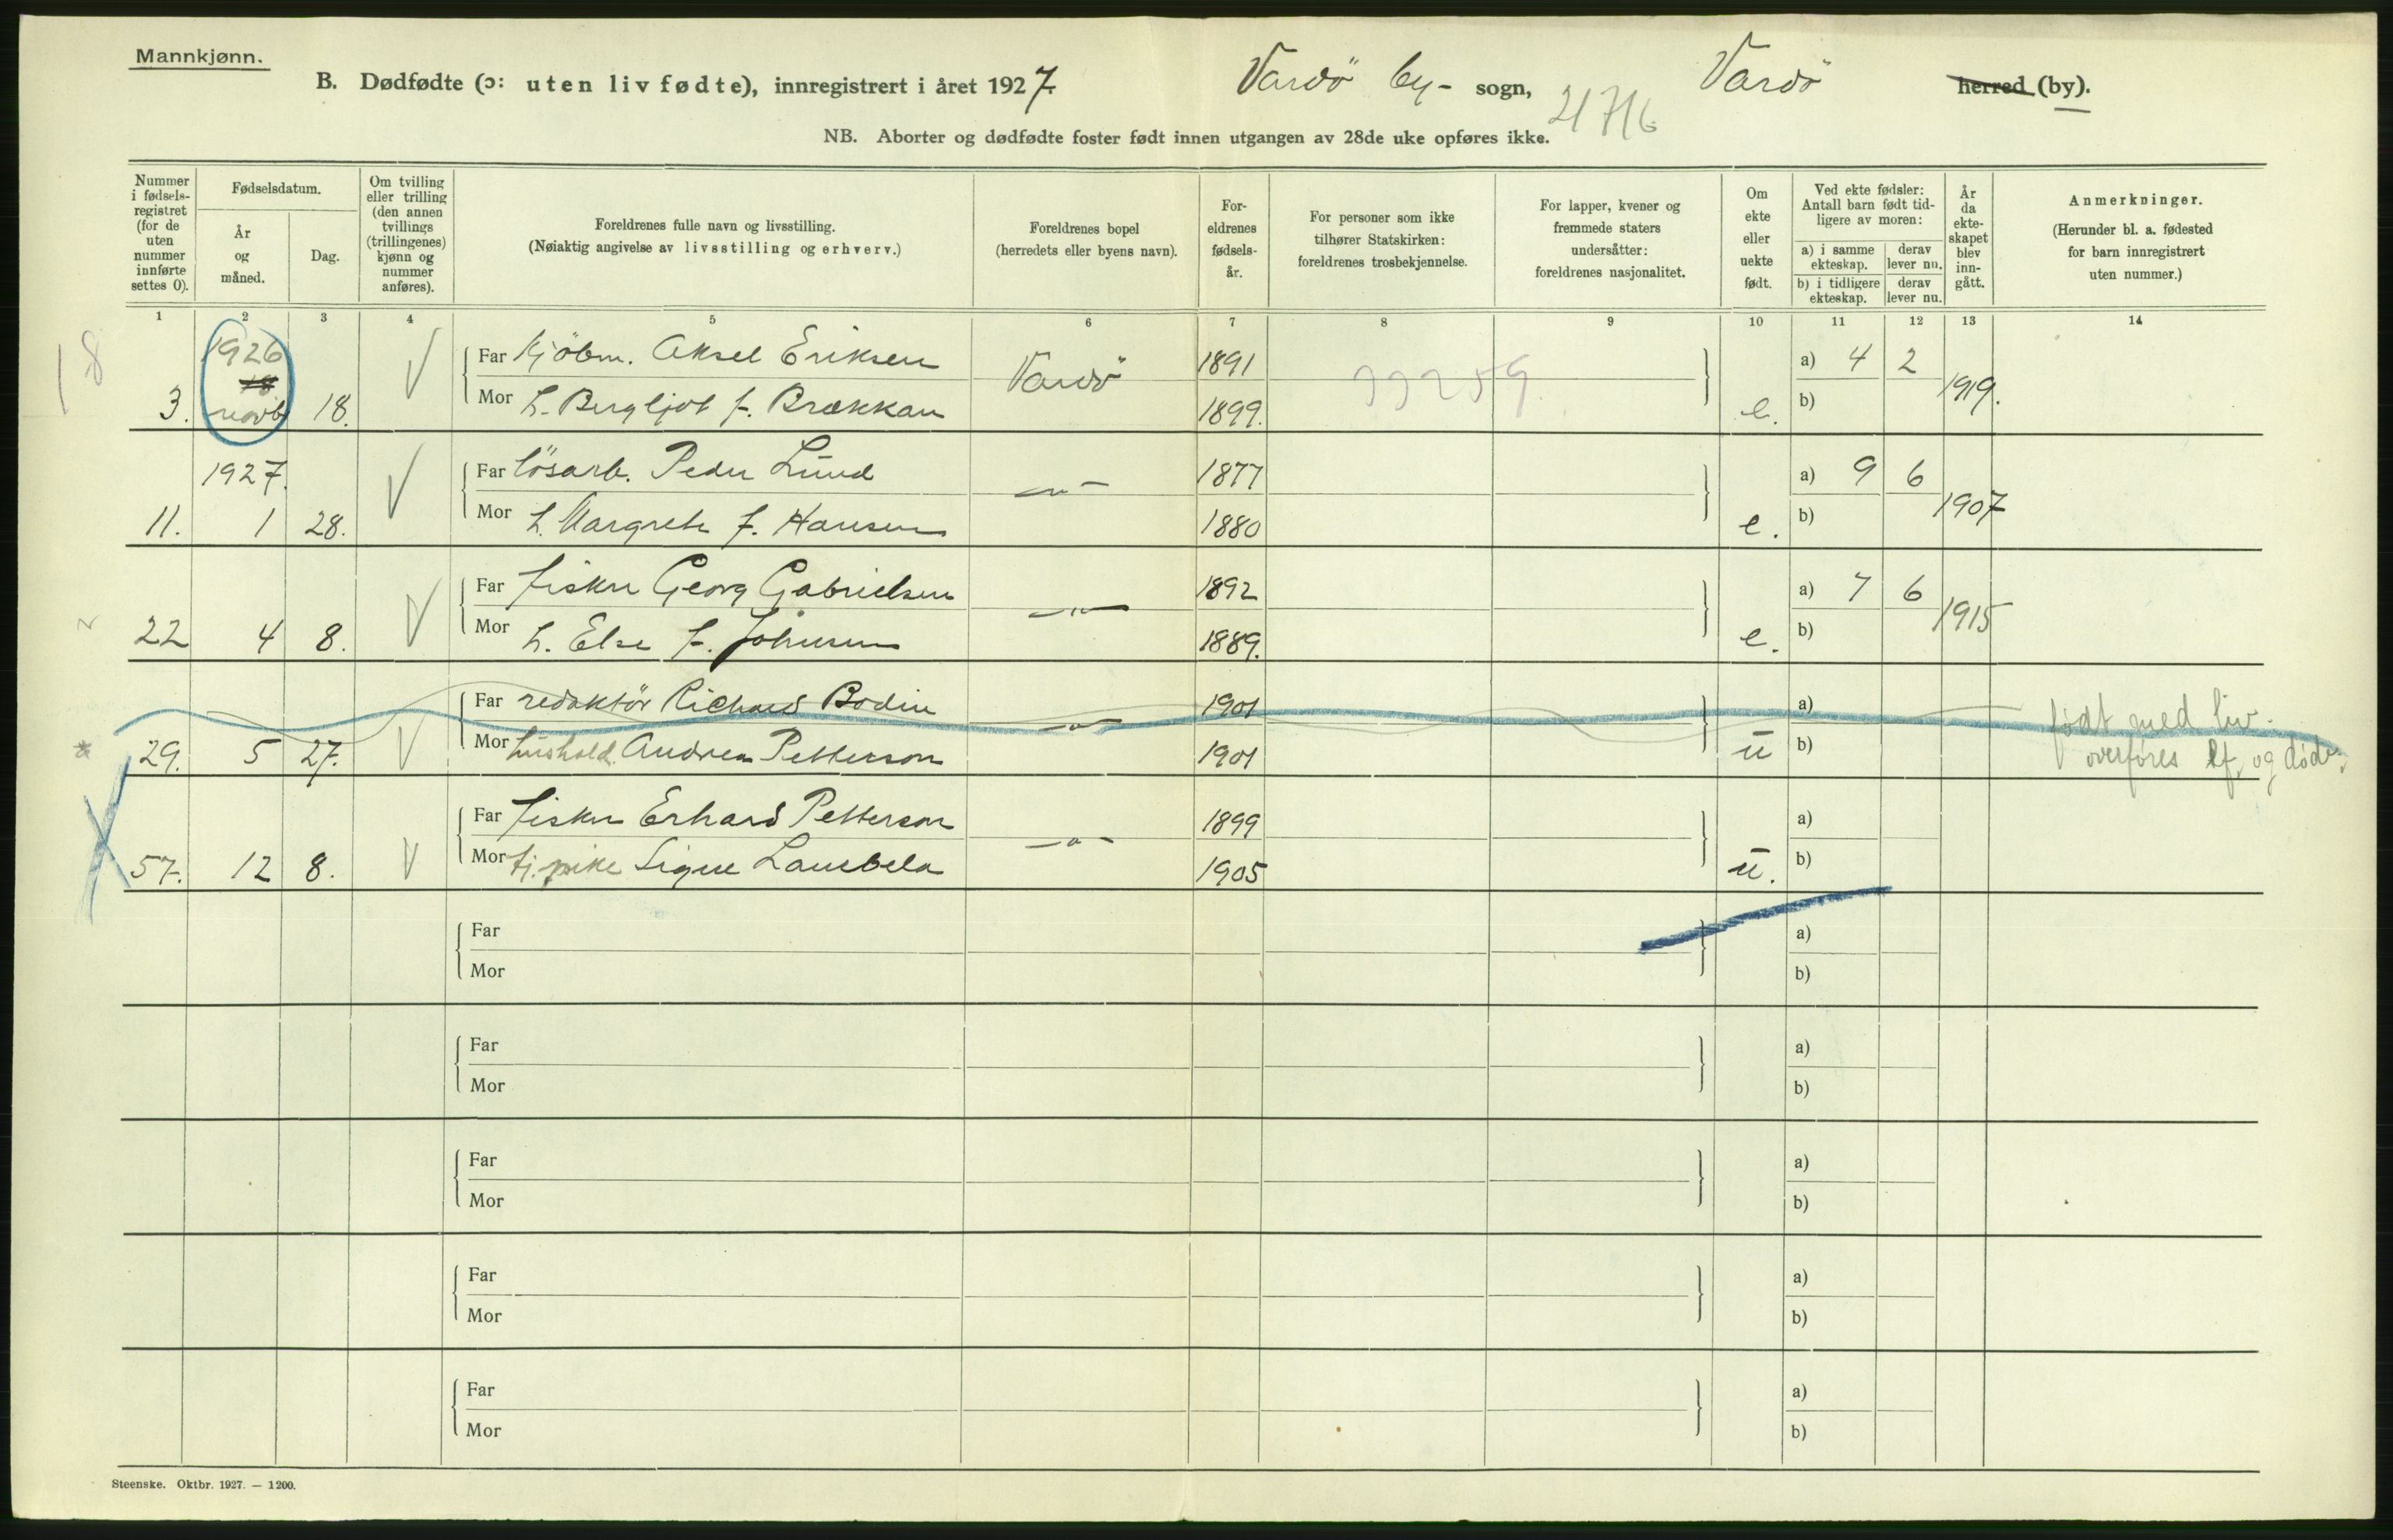 Mannkjønn.
B. Dødfødte (ɔ: uten liv fødte), innregistrert i året 1927. Vardö by- sogn, Vardö herred (by).
21716
NB. Aborter og dødfødte foster født innen utgangen av 28de uke opføres ikke.
Nummer i fødsels-registret (for de uten nummer innførte settes 0).
Fødselsdatum.
År og måned.
Dag.
Om tvilling eller trilling (den annen tvillings (trillingenes) kjønn og nummer anføres).
Foreldrenes fulle navn og livsstilling.
(Nøiaktig angivelse av livsstilling og erhverv.)
Foreldrenes bopel
(herredets eller byens navn).
For-eldrenes fødsels-år.
For personer som ikke tilhører Statskirken: foreldrenes trosbekjennelse.
For lapper, kvener og fremmede staters undersåtter: foreldrenes nasjonalitet.
Om ekte eller uekte født.
Ved ekte fødsler: Antall barn født tid-ligere av moren:
a) i samme ekteskap.
derav lever nu.
b) i tidligere ekteskap.
derav lever nu.
År da ekte-skapet blev inn-gått.
Anmerkninger.
(Herunder bl. a. fødested for barn innregistrert uten nummer.)
1 2 3 4 5 6 7 8 9 10 11 12 13 14
18
1926 Far Kjöbm. Aksel Eriksen Vardö 1891 a) 4 2 1919.
3. novb 18. Mor h. Bergljot f. Brækkan 1899. e. b)
1927. Far lösarb. Peder Lund -"- 1877 a) 9 6 1907
11. 1 28. Mor h. Margrete f. Hansen 1880 e. b)
Far fisker Georg Gabrielsen -"- 1892 a) 7 6 1915
22 4 8. Mor h. Else f. Johnsen 1889. e. b)
Far redaktör Richard Bodin -"- 1901 a) født med liv.
29. 5 27. Mor hushold. Andrea Petterson 1901 u b) overføres lf. og døde.
Far fisker Erhard Petterson -"- 1899 a)
57. 12 8. Mor tj. pike Signe Lambela 1905 u. b)
Far a)
Mor b)
Far a)
Mor b)
Far a)
Mor b)
Far a)
Mor b)
Far a)
Mor b)
Steenske. Oktbr. 1927. — 1200.